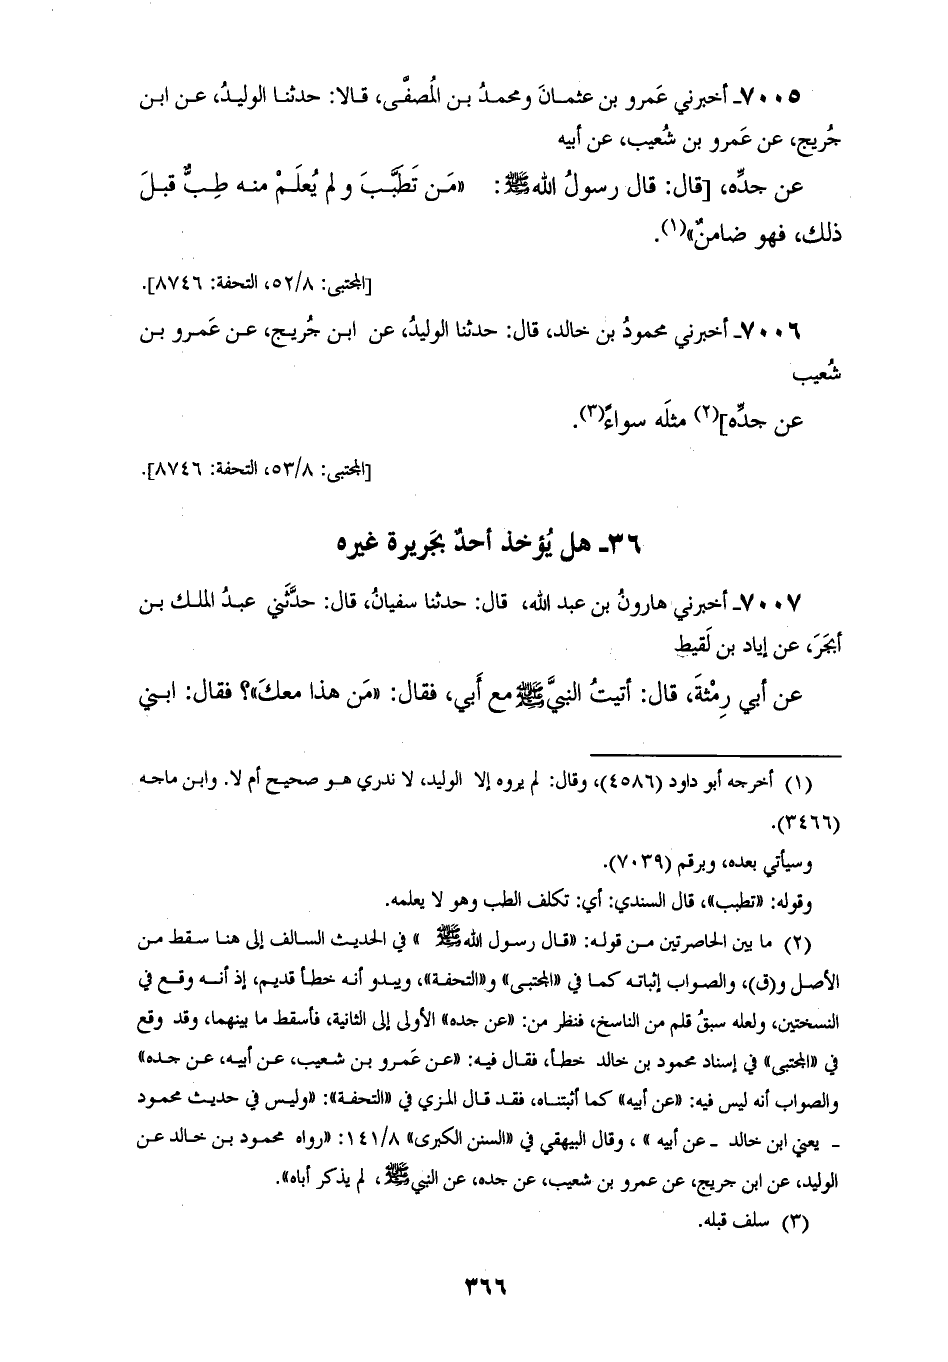 ٧٠٠٥ـ أخبرني عَمرو بن عثمانَ ومحمدُ بن المُصفَّى، قالا: حدثنا الوليدُ، عن ابن
جُريج، عن عَمرو بن شُعيب، عن أبيه
عن جدِّه، [قال: قال رسولُ الله ﷺ: «مَن تَطَبَّبَ ولم يُعلَمْ منه طِبٌّ قبلَ
ذلك، فهو ضامنٌ»(١).
[المجتبى: ٥٢/٨، التحفة: ٨٧٤٦].
٧٠٠٦ـ أخبرني محمودُ بن خالد، قال: حدثنا الوليدُ، عن ابن جُريج، عن عَمرو بن
شُعيب
عن جدِّه](٢) مثلَه سواءً(٣).
[المجتبى: ٥٣/٨، التحفة: ٨٧٤٦].
٣٦ـ هل يُؤخذ أحدٌ بجَريرة غيره
٧٠٠٧ـ أخبرني هارونُ بن عبد الله، قال: حدثنا سفيانُ، قال: حدَّثَني عبدُ الملك بن
أبجَرَ، عن إياد بن لَقيط
عن أبي رِمْثةَ، قال: أتيتُ النبيَّ ﷺ مع أَبي، فقال: «مَن هذا معكَ»؟ فقال: ابني
(١) أخرجه أبو داود (٤٥٨٦)، وقال: لم يروه إلا الوليد، لا ندري هو صحيح أم لا. وابن ماجه
(٣٤٦٦).
وسيأتي بعده، وبرقم (٧٠٣٩).
وقوله: «تطبب»، قال السندي: أي: تكلف الطب وهو لا يعلمه.
(٢) ما بين الحاصرتين من قوله: «قال رسول الله ﷺ » في الحديث السالف إلى هنا سقط من
الأصل و(ق)، والصواب إثباته كما في «المجتبى» و«التحفة»، ويبدو أنه خطأ قديم، إذ أنه وقع في
النسختين، ولعله سبقُ قلم من الناسخ، فنظر من: «عن جده» الأولى إلى الثانية، فأسقط ما بينهما، وقد وقع
في «المجتبى» في إسناد محمود بن خالد خطأ، فقال فيه: «عن عَمرو بن شعيب، عن أبيه، عن جده»
والصواب أنه ليس فيه: «عن أبيه» كما أثبتناه، فقد قال المزي في «التحفة»: «وليس في حديث محمود
ـ يعني ابن خالد ـ عن أبيه » ، وقال البيهقي في «السنن الكبرى» ١٤١/٨: «رواه محمود بن خالد عن
الوليد، عن ابن جريج، عن عمرو بن شعيب، عن جده، عن النبي ﷺ ، لم يذكر أباه».
(٣) سلف قبله.
٣٦٦